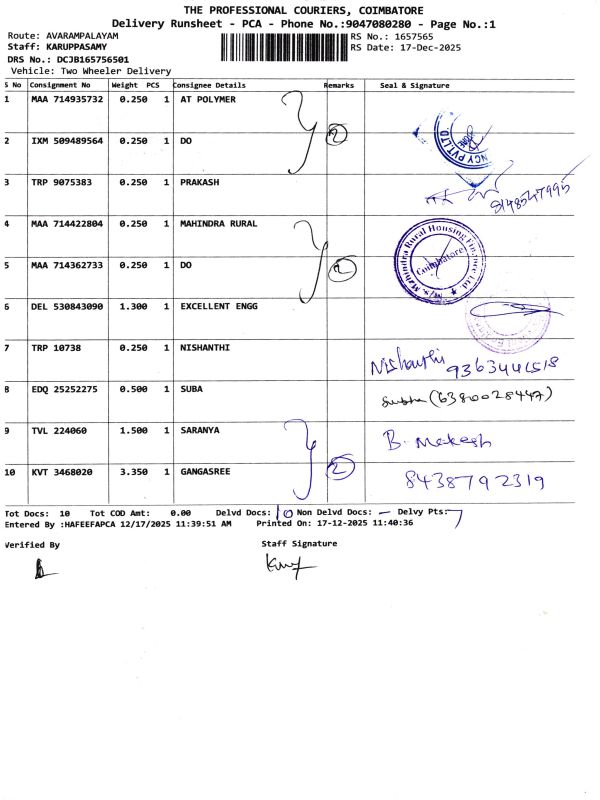 THE PROFESSIONAL COURIERS, COIMBATORE
Delivery Runsheet - PCA - Phone No.:9047080280 - Page No.:1
Route: AVARAMPALAYAM RS No.: 1657565
Staff: KARUPPASAMY RS Date: 17-Dec-2025
DRS No.: DCJB165756501
Vehicle: Two Wheeler Delivery
S No Consignment No Weight PCS Consignee Details Remarks Seal & Signature
1 MAA 714935732 0.250 1 AT POLYMER
2 IXM 509489564 0.250 1 DO 2
NCY PVT LTD
3 TRP 9075383 0.250 1 PRAKASH
9148547995
4 MAA 714422804 0.250 1 MAHINDRA RURAL
M/s. Mahindra Rural Housing Finance Ltd
Coimbatore
5 MAA 714362733 0.250 1 DO 2
6 DEL 530843090 1.300 1 EXCELLENT ENGG
7 TRP 10738 0.250 1 NISHANTHI Nishanthi
8 EDQ 25252275 0.500 1 SUBA Subha (6380028447)
9 TVL 224060 1.500 1 SARANYA 2 B. Makesh
10 KVT 3468020 3.350 1 GANGASREE 8438792319
Tot Docs: 10 Tot COD Amt: 0.00 Delvd Docs: 10 Non Delvd Docs: — Delvy Pts: 7
Entered By :HAFEEFAPCA 12/17/2025 11:39:51 AM Printed On: 17-12-2025 11:40:36
Verified By Staff Signature